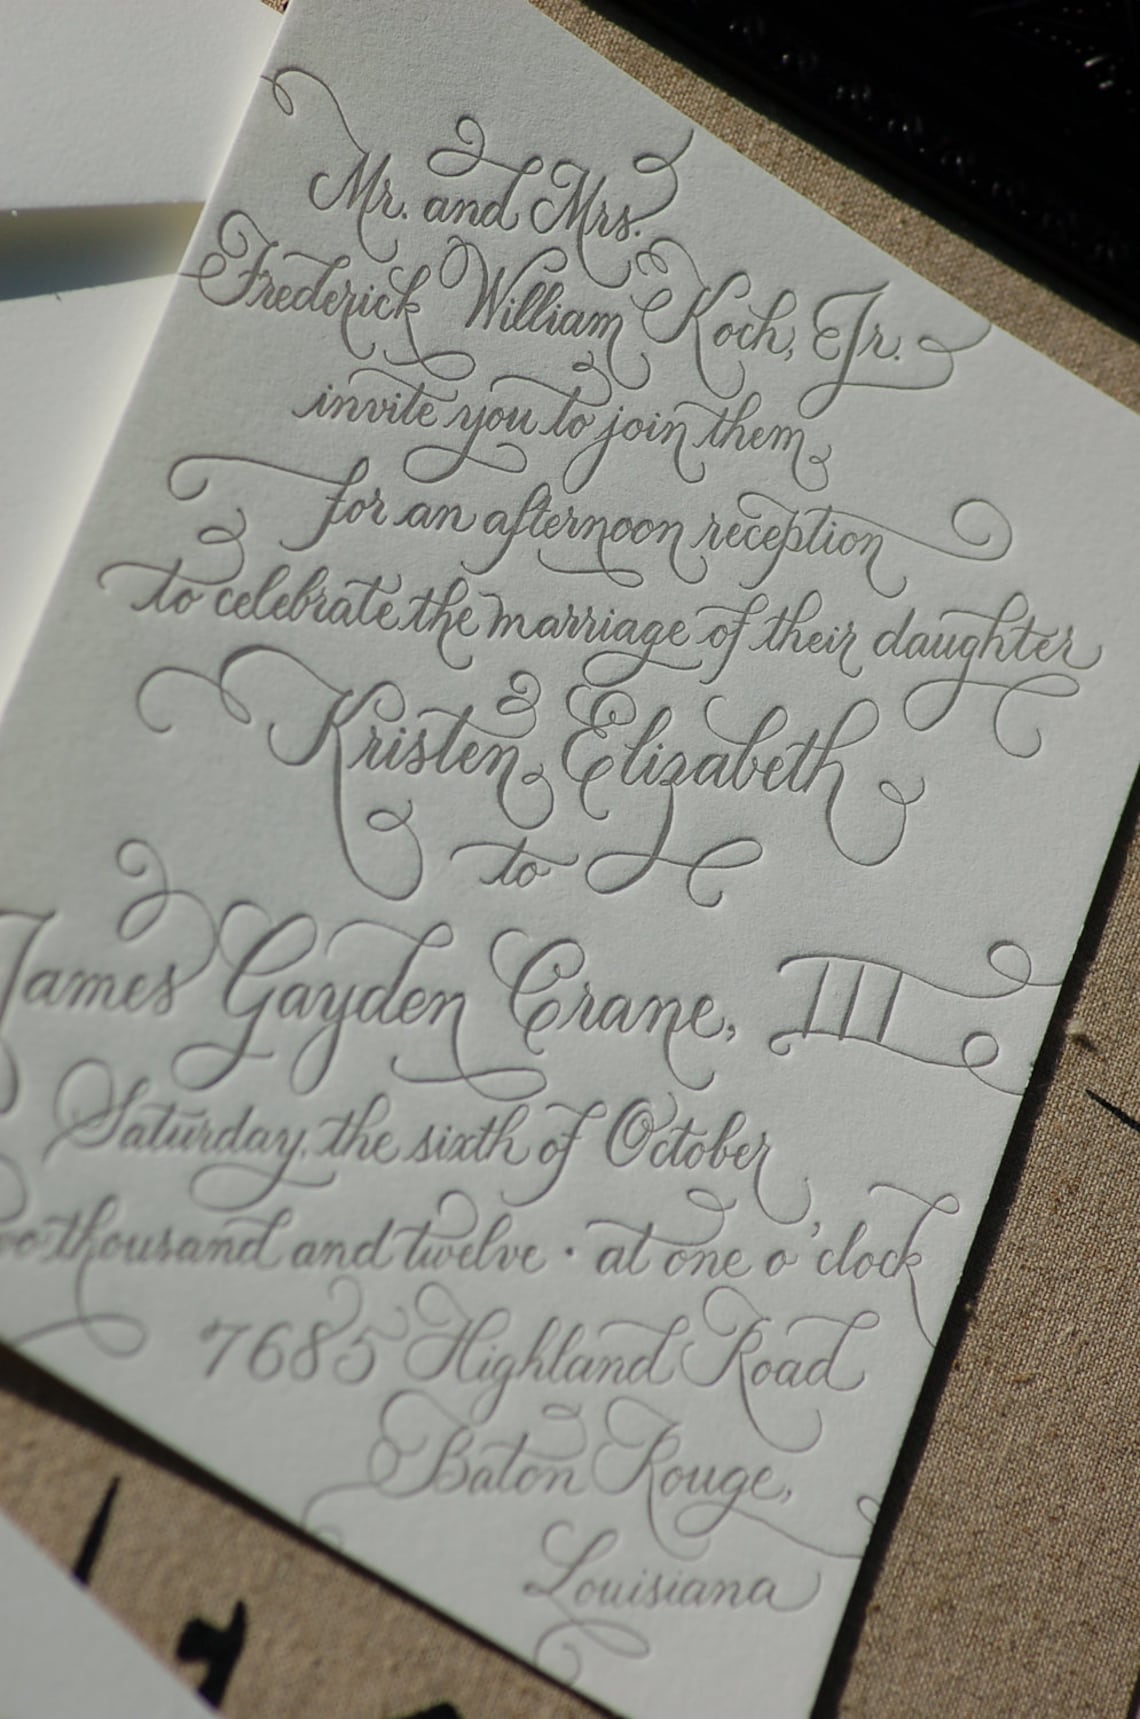 Mr. and Mrs.
Frederick William Koch, Jr.
invite you to join them
for an afternoon reception
to celebrate the marriage of their daughter
Kristen Elizabeth
to
James Gayden Crane, III
Saturday, the sixth of October
two thousand and twelve · at one o'clock
7685 Highland Road
Baton Rouge,
Louisiana